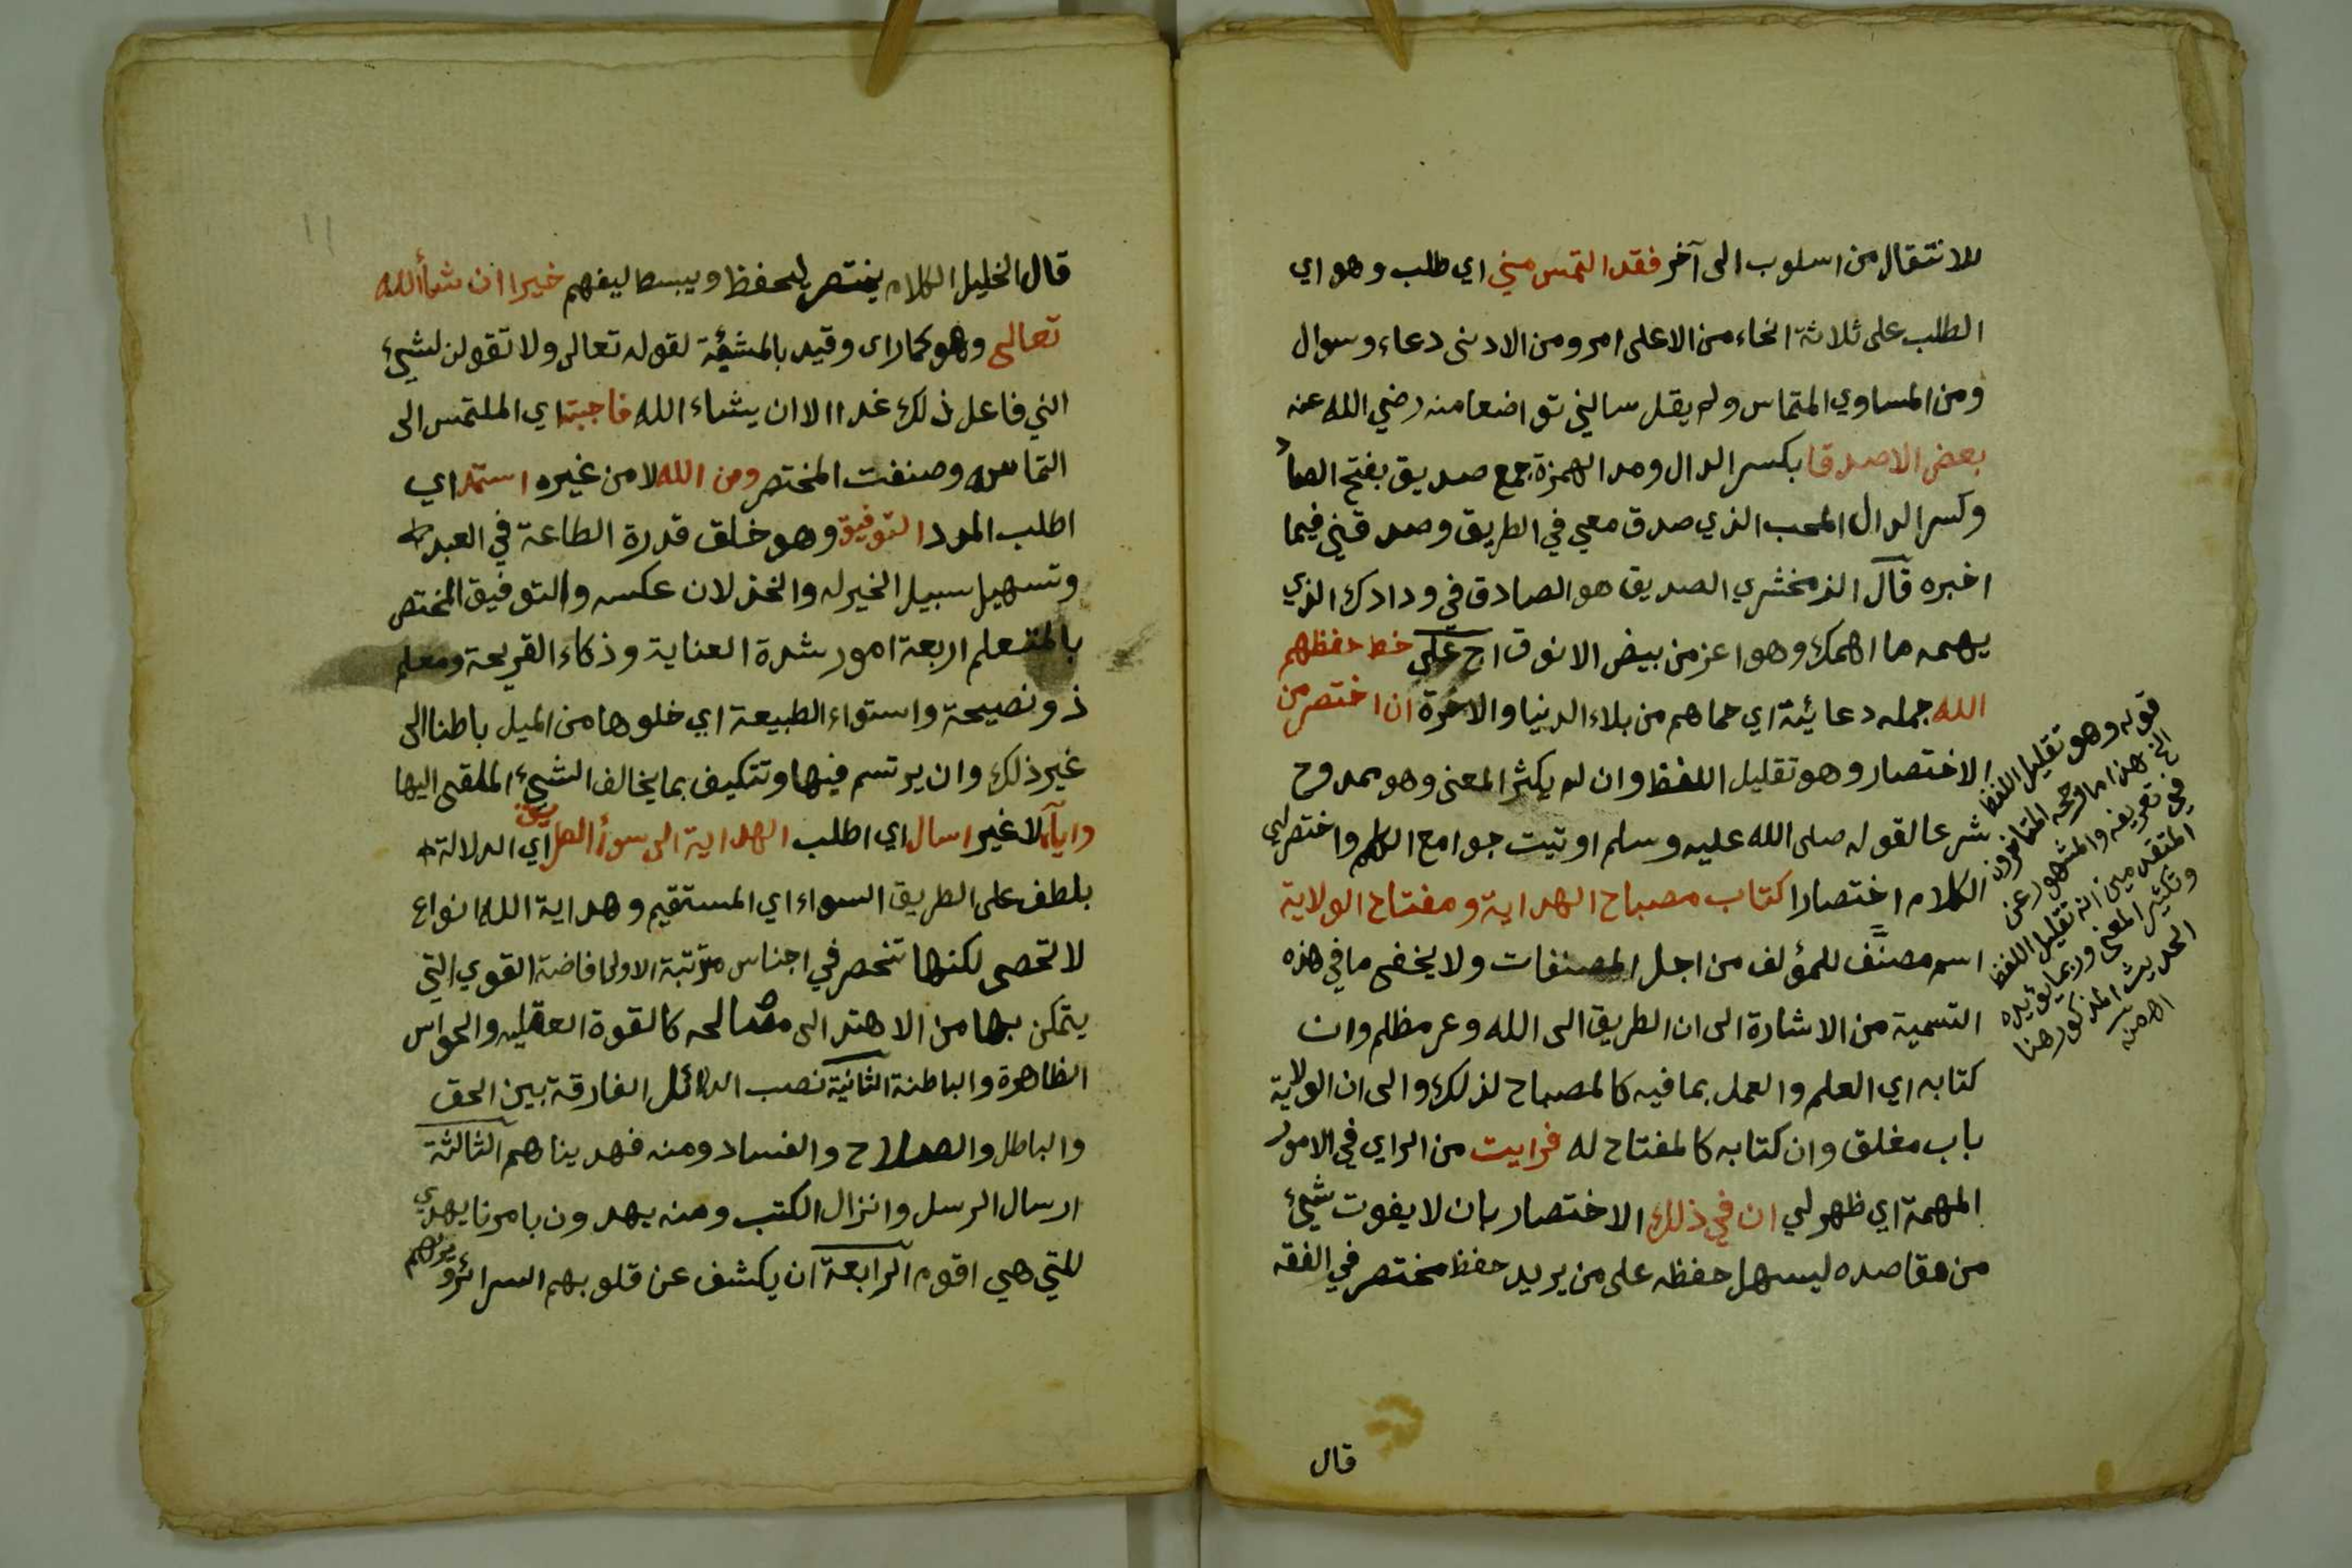 للانتقال من اسلوب الى آخر فقد التمس مني اي طلب وهو اي
الطلب على ثلاثة انحاء من الاعلى امر ومن الادنى دعاء وسوال
ومن المساوي التماس ولم يقل سالني تواضعا منه رضي الله عنه
بعض الاصدقا بكسر الدال ومد الهمزة جمع صديق بفتح الصاد
وكسر الدال المحب الذي صدق معي في الطريق وصدقني فيما
اخبره قال الزمخشري الصديق هو الصادق في ودادك الذي
يهمه ما اهمك وهو اعز من بيض الانوق اح على خط حفظهم
الله جمله دعائية اي حماهم من بلاء الدنيا والاخرة ان اختصر من
الاختصار وهو تقليل اللفظ وان لم يكثر المعنى وهو ممدوح
شرعا لقوله صلى الله عليه وسلم اوتيت جوامع الكلم واختصر لي
الكلام اختصارا كتاب مصباح الهداية ومفتاح الولاية
اسم مصنَّف للمؤلف من اجل المصنفات ولا يخفى ما في هذه
التسمية من الاشارة الى ان الطريق الى الله وعر مظلم وان
كتابه اي العلم والعمل بما فيه كالمصباح لذلك والى ان الولاية
باب مغلق وان كتابه كالمفتاح له فرايت من الراي في الامور
المهمة اي ظهر لي ان في ذلك الاختصار بان لا يفوت شيئ
من مقاصده ليسهل حفظه على من يريد حفظ مختصر في الفقه
قال
قوله وهو تقليل اللفظ
الخ هذا ما رجحه المتاخرون
في تعريفه والمشهور عن
المتقدمين انه تقليل اللفظ
وتكثير المعنى وربما يؤيده
الحديث المذكور هنا
اه منه
١١
قال الخليل الكلام يختصر ليحفظ ويبسط ليفهم خيرا ان شاء الله
تعالى وهو كما راى وقيد بالمشيئة لقوله تعالى ولا تقولن لشيئ
اني فاعل ذلك غدا الا ان يشاء الله فاجبته اي الملتمس الى
التماسه وصنفت المختصر ومن الله لا من غيره استمد اي
اطلب المدد التوفيق وهو خلق قدرة الطاعة في العبد
وتسهيل سبيل الخير له والخذلان عكسه والتوفيق المختص
بالمتعلم اربعة امور شدة العناية وذكاء القريحة ومعلم
ذو نصيحة واستواء الطبيعة اي خلوها من الميل باطنا الى
غير ذلك وان يرتسم فيها وتتكيف بما يخالف الشيئ الملقى اليها
واياه لا غير اسال اي اطلب الهداية الى سواء الطريق اي الدلالة
بلطف على الطريق السواء اي المستقيم وهداية الله انواع
لا تحصى لكنها تنحصر في اجناس مترتبة الاولى افاضة القوي التي
يتمكن بها من الاهتداء الى مصالحه كالقوة العقليه والحواس
الظاهرة والباطنة الثانية نصب الدلائل الفارقة بين الحق
والباطل والصلاح والفساد ومنه فهديناهم الثالثة
ارسال الرسل وانزال الكتب ومنه يهدون بامرنا يهدي
للتي هي اقوم الرابعة ان يكشف عن قلوبهم السرائر ويريهم